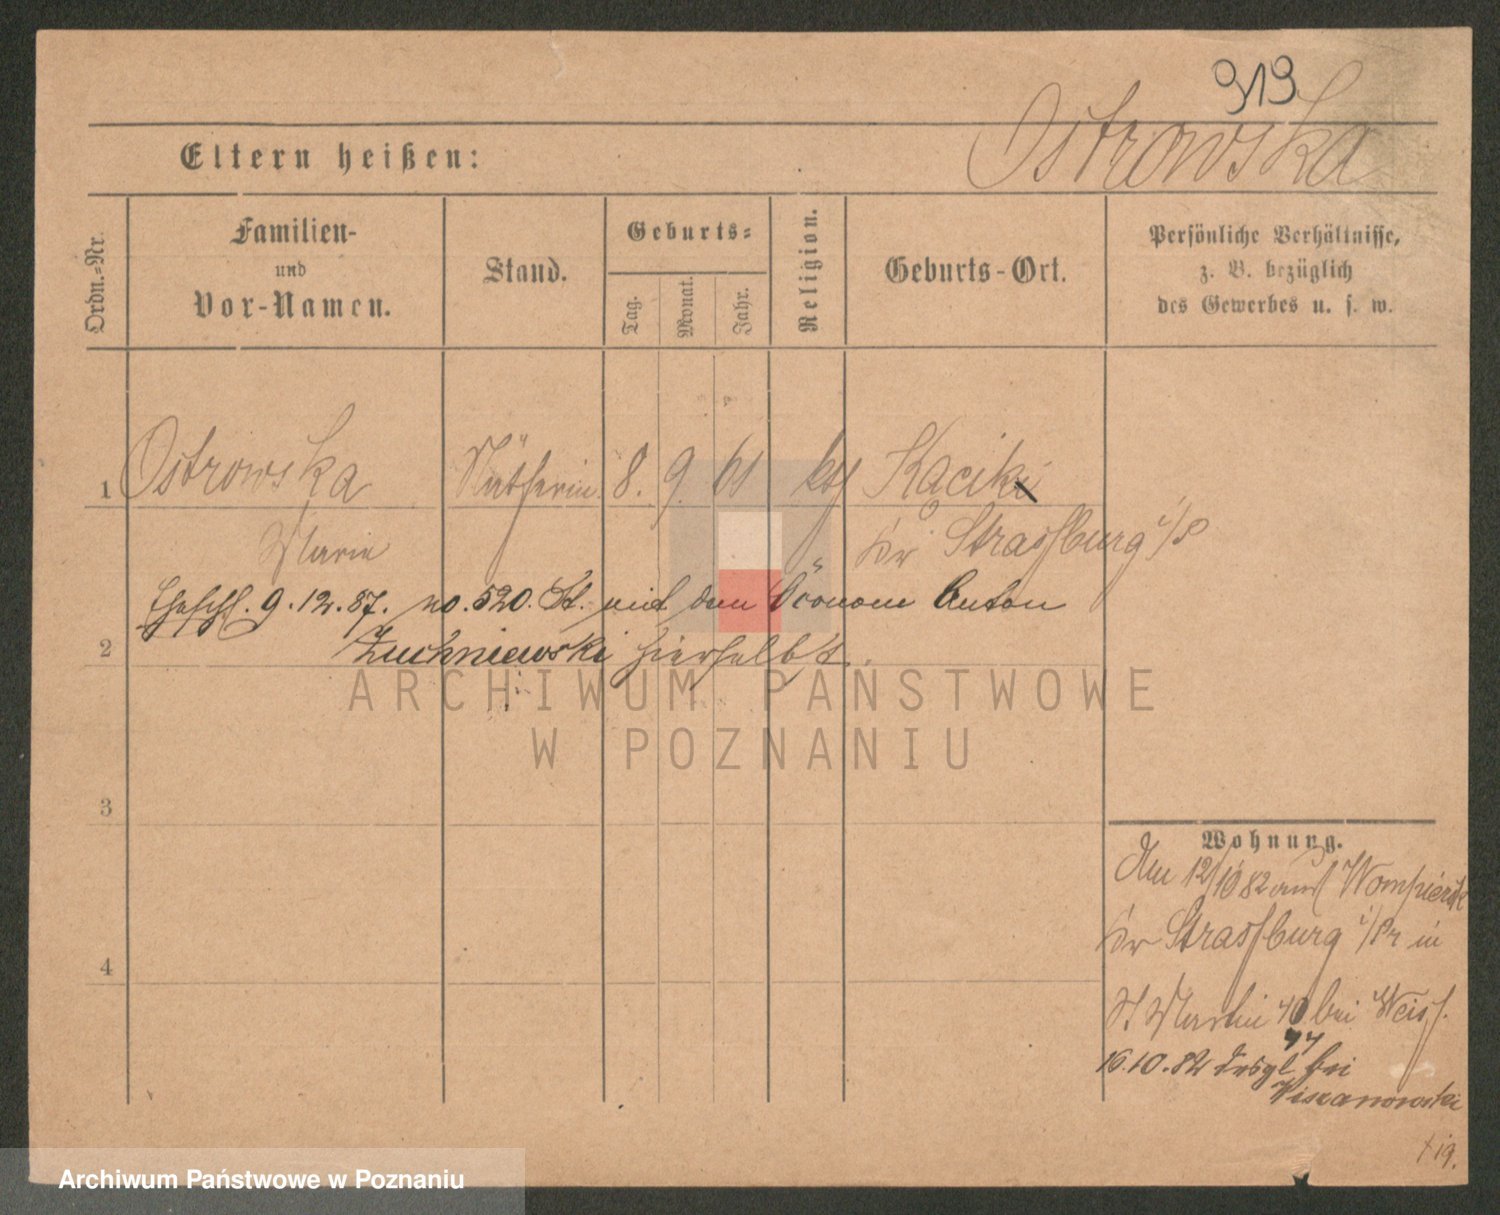 919
Ostrowska
Eltern heißen:
Ordn.-Nr.
Familien-
und
Vor-Namen.
Stand.
Geburts-
Tag.
Monat.
Jahr.
Religion.
Geburts-Ort.
Persönliche Verhältnisse,
z. B. bezüglich
des Gewerbes u. s. w.
1 Ostrowska Nätherin 8. 9. 61 kth Kaciki
Marie Kr Strassburg i/P
Eheschl. 9.12.87. no. 520. St. mit dem Öconom Anton
2 Zuchniewski hierselbst.
ARCHIWUM PAŃSTWOWE
W POZNANIU
3
4
Wohnung.
Am 12/10 82 aus Wompiersk
Kr Strassburg i/Pr in
St Martin 40 bei Weiss.
44
16.10.82 desgl bei
19.
Archiwum Państwowe w Poznaniu